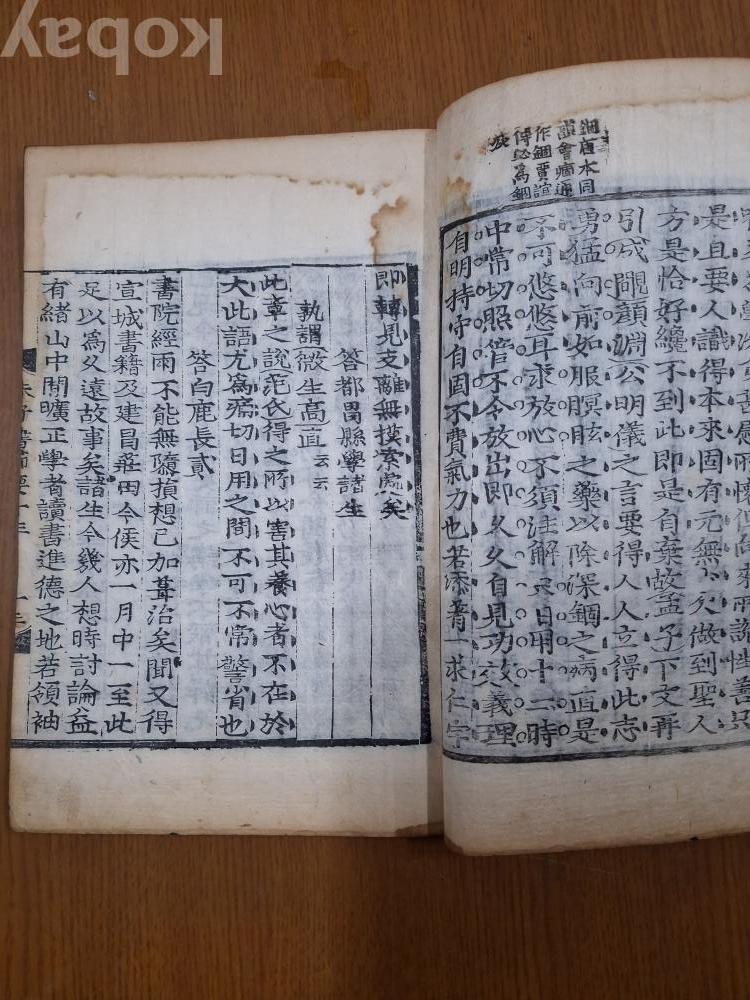 kobay
錮唐本同
韻會痼通
作錮賈誼
傳必爲錮
疾
說性善只
是且要人識得本來固有元無少欠做到聖人
方是恰好纔不到此即是自棄故孟子下文再
引成覵顔淵公明儀之言要得人人立得此志
勇猛向前如服瞑眩之藥以除深錮之病直是
不可悠悠耳求放心不須注解只日用十二時
中常切照管不令放出即久久自見功效義理
自明持守自固不費氣力也若添著一求仁字
即轉見支離無摸索處矣
答都昌縣學諸生
孰謂微生高直云云
此章之說范氏得之所以害其養心者不在於
大此語尤爲痛切日用之間不可不常警省也
答白鹿長貳
書院經雨不能無隨損想已加葺治矣聞又得
宣城書籍及建昌莊田今侯亦一月中一至此
足以爲久遠故事矣諸生今幾人想時討論益
有緒山中閒曠正學者讀書進德之地若領袖
朱子書節要十三